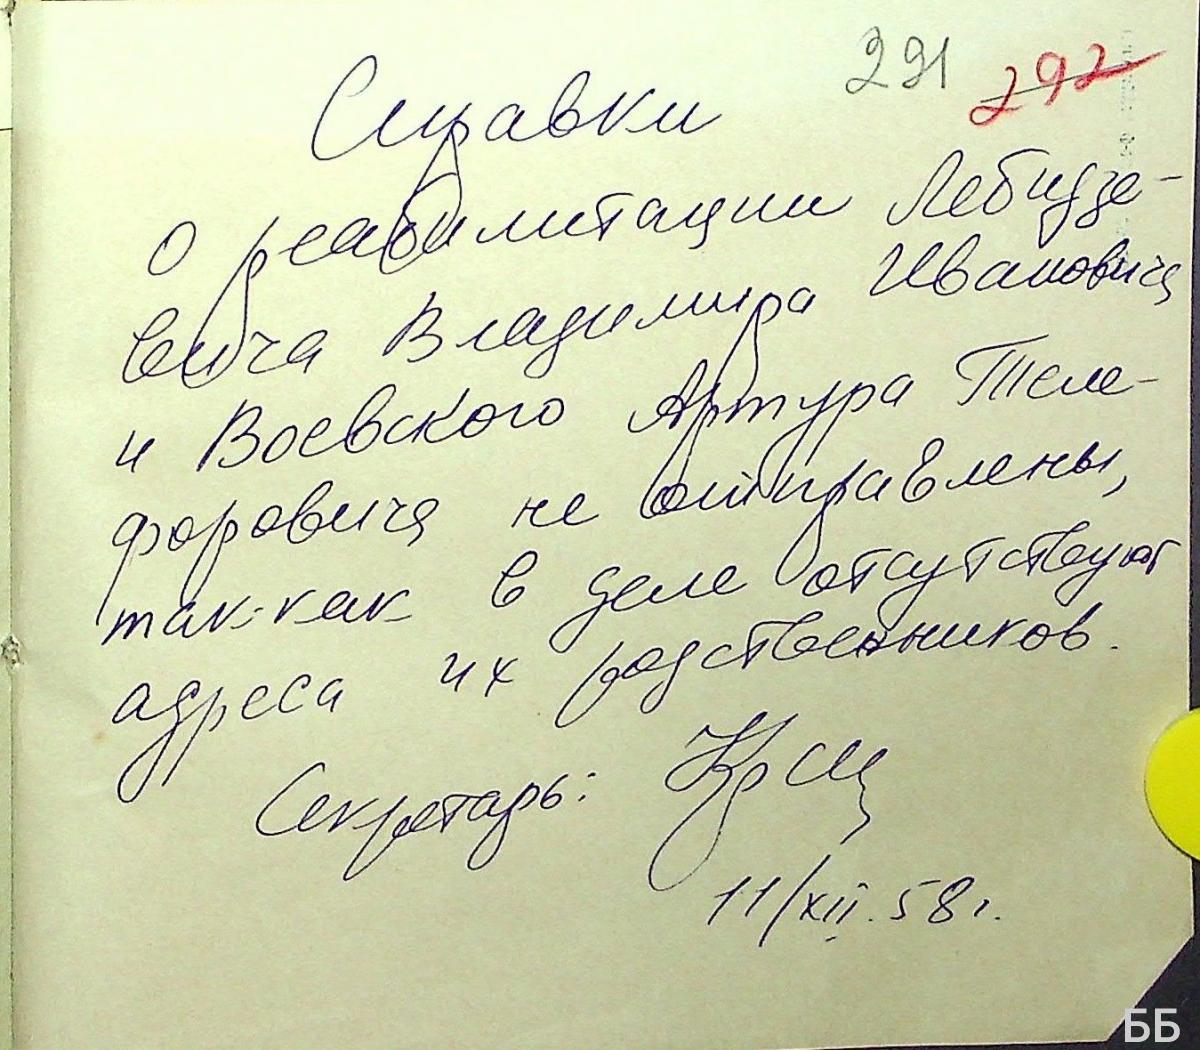 291 292
Справки
о реабилитации Лебидзе-
вича Владимира Ивановича
и Воевского Артура Теле-
форовича не отправлены,
так-как в деле отсутствуют
адреса их родственников.
Секретарь:
11/XII. 58 г.
ББ